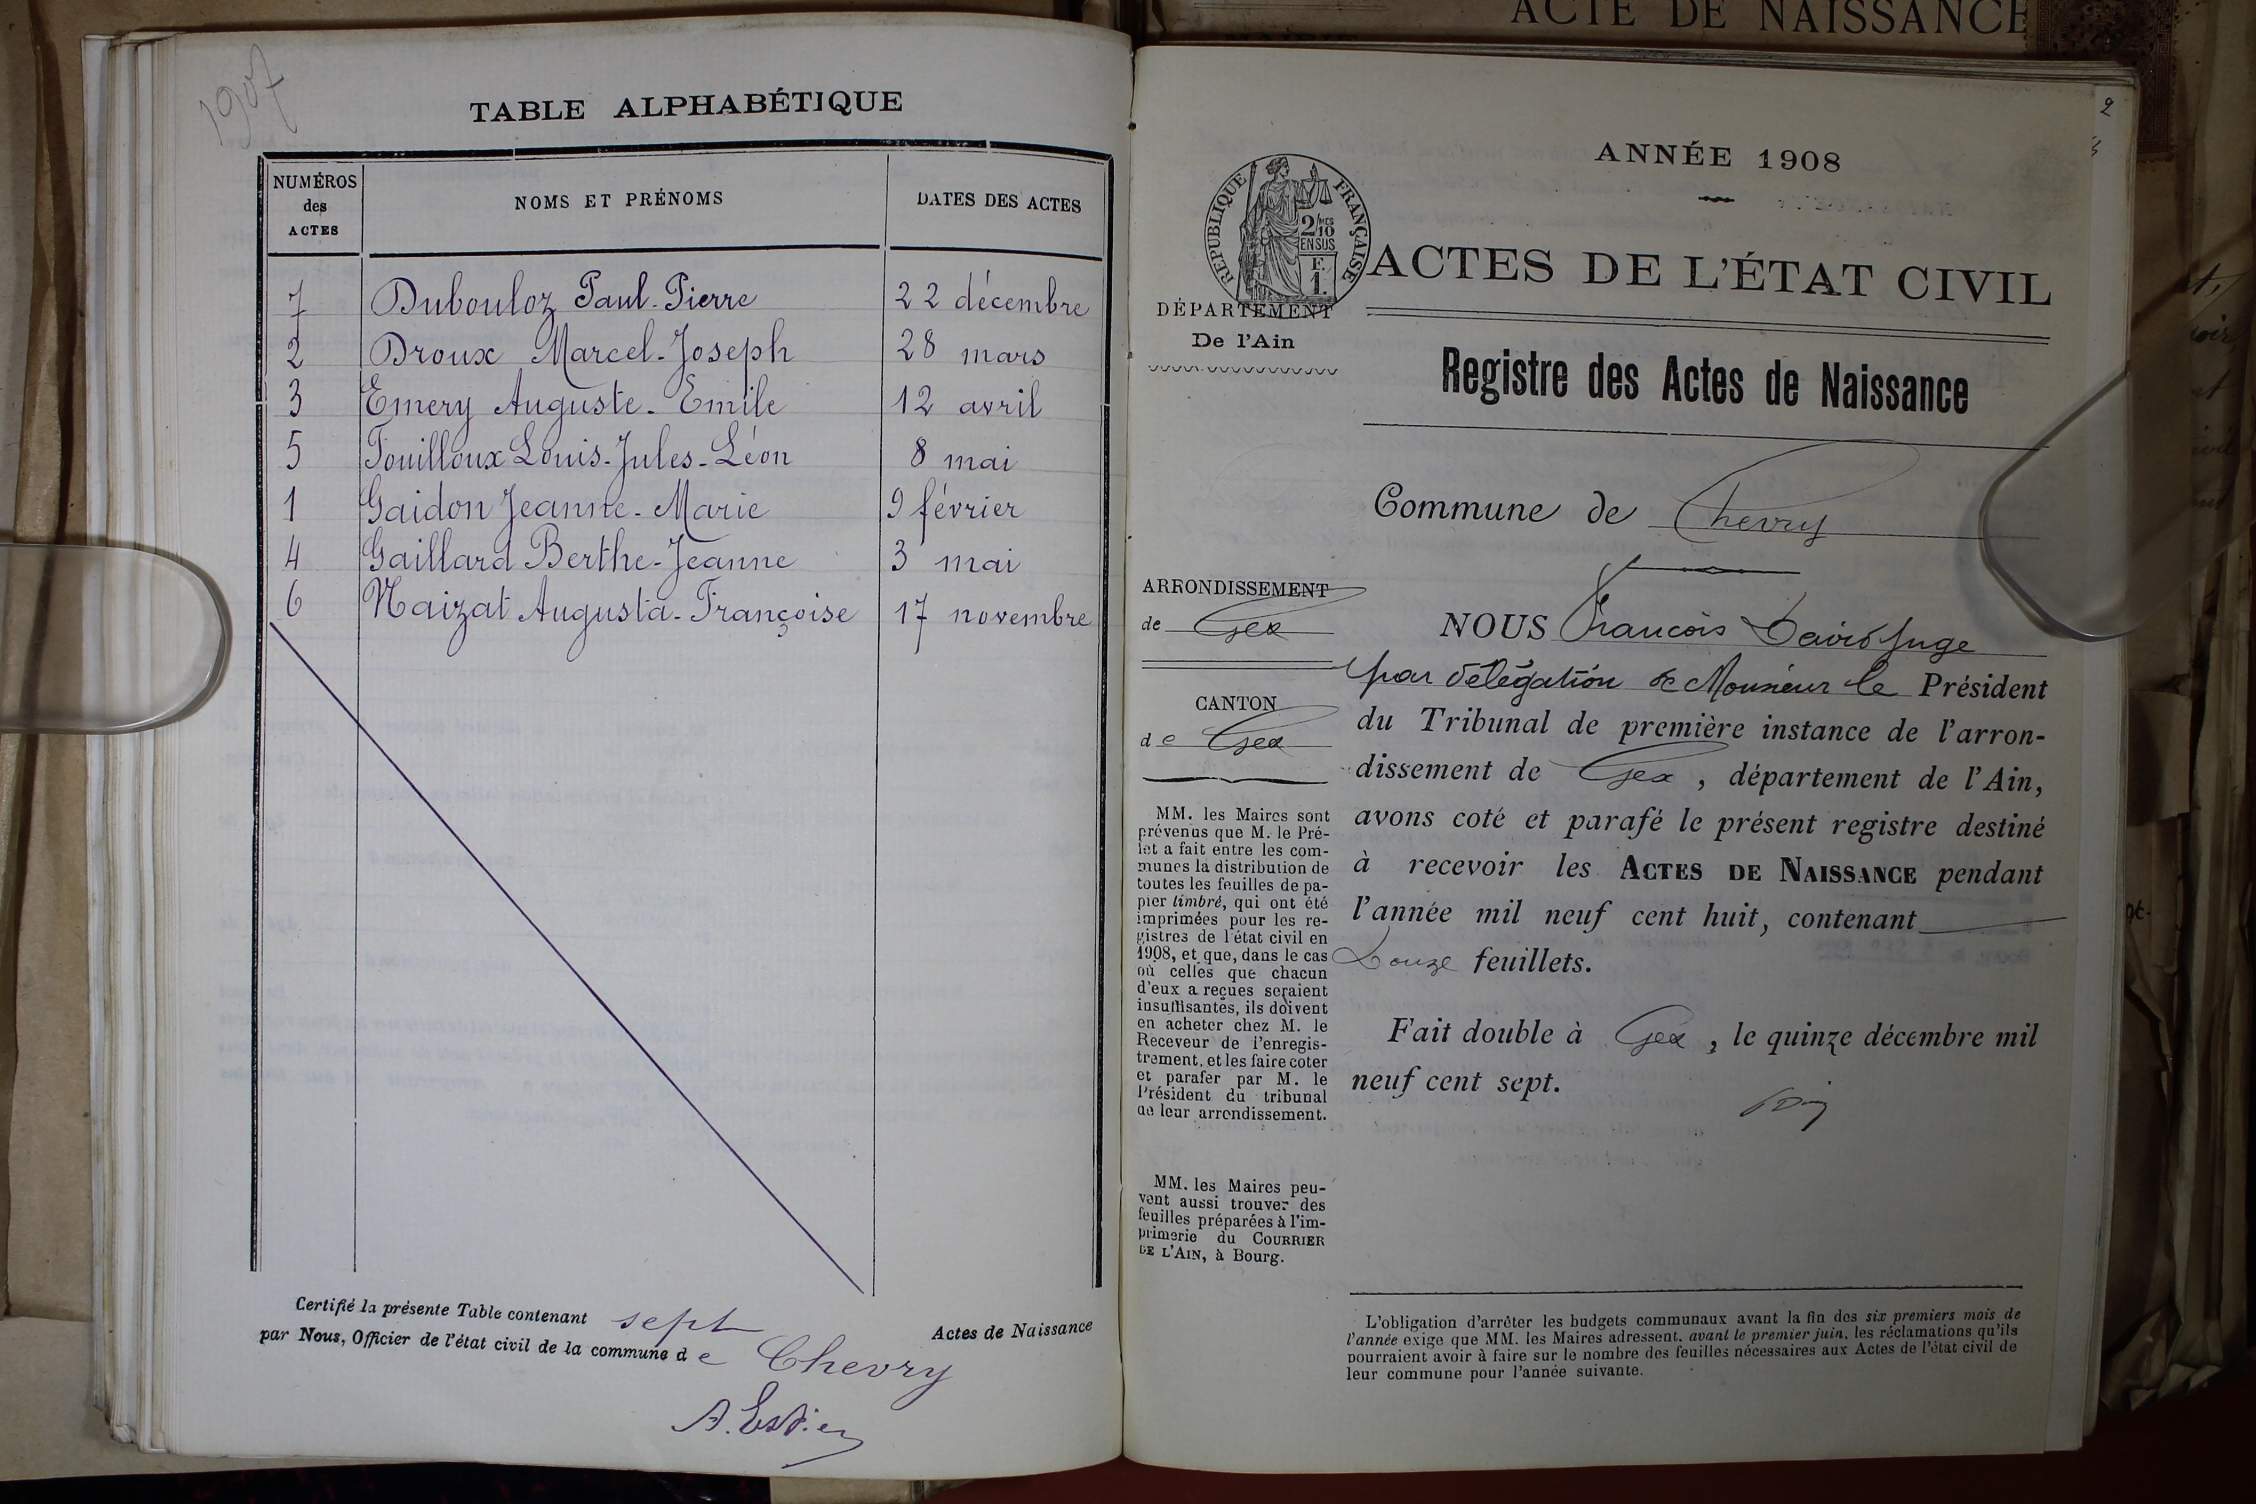 ACTE DE NAISSANCE
1907
TABLE ALPHABÉTIQUE
NUMÉROS des ACTES NOMS ET PRÉNOMS DATES DES ACTES
7 Dubouloz Paul-Pierre 22 décembre
2 Droux Marcel-Joseph 28 mars
3 Emery Auguste-Emile 12 avril
5 Fouilloux Louis-Jules-Léon 8 mai
1 Gaidon Jeanne-Marie 9 février
4 Gaillard Berthe-Jeanne 3 mai
6 Naizat Augusta-Françoise 17 novembre
Certifié la présente Table contenant sept Actes de Naissance
par Nous, Officier de l'état civil de la commune de Chevry
A. Estier
2
ANNÉE 1908
RÉPUBLIQUE FRANÇAISE
2/10 MES
EN SUS
F.
1.
ACTES DE L'ÉTAT CIVIL
DÉPARTEMENT
De l'Ain
Registre des Actes de Naissance
Commune de Chevry
ARRONDISSEMENT
de Gex
CANTON
de Gex
MM. les Maires sont
prévenus que M. le Pré-
fet a fait entre les com-
munes la distribution de
toutes les feuilles de pa-
pier timbré, qui ont été
imprimées pour les re-
gistres de l'état civil en
1908, et que, dans le cas
où celles que chacun
d'eux a reçues seraient
insuffisantes, ils doivent
en acheter chez M. le
Receveur de l'enregis-
trement, et les faire coter
et parafer par M. le
Président du tribunal
de leur arrondissement.
MM. les Maires peu-
vent aussi trouver des
feuilles préparées à l'im-
primerie du COURRIER
DE L'AIN, à Bourg.
NOUS François David Juge
par délégation de Monsieur le Président
du Tribunal de première instance de l'arron-
dissement de Gex, département de l'Ain,
avons coté et parafé le présent registre destiné
à recevoir les ACTES DE NAISSANCE pendant
l'année mil neuf cent huit, contenant
Douze feuillets.
Fait double à Gex, le quinze décembre mil
neuf cent sept.
L'obligation d'arrêter les budgets communaux avant la fin des six premiers mois de
l'année exige que MM. les Maires adressent, avant le premier juin, les réclamations qu'ils
pourraient avoir à faire sur le nombre des feuilles nécessaires aux Actes de l'état civil de
leur commune pour l'année suivante.